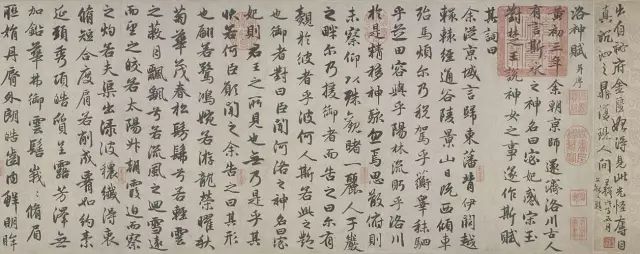 出自秘府金匱
見此光恠奪目
人間
洛神賦 并序
黃初三年余朝京師還濟洛川古人
有言斯水之神名曰宓妃感宋玉
對楚王說神女之事遂作斯賦
其詞曰
余從京域言歸東藩背伊闕越
轘轅經通谷陵景山日既西傾車
殆馬煩爾乃稅駕乎蘅皋秣駟
乎芝田容與乎陽林流眄乎洛川
於是精移神駭忽焉思散俯則
未察仰以殊觀睹一麗人于巖
之畔爾乃援御者而告之曰爾有
覿於彼者乎彼何人斯若此之艷
也御者對曰臣聞河洛之神名曰宓
妃則君王之所見也無乃是乎其
狀若何臣願聞之余告之曰其形
也翩若驚鴻婉若游龍榮曜秋
菊華茂春松髣髴兮若輕雲
之蔽月飄飄兮若流風之迴雪遠
而望之皎若太陽升朝霞迫而察
之灼若夫渠出淥波穠纖得衷
脩短合度肩若削成腰若約素
延頸秀項皓質呈露芳澤無
加鉛華弗御雲髻峩峩脩眉
聯娟丹脣外朗皓齒內鮮明眸